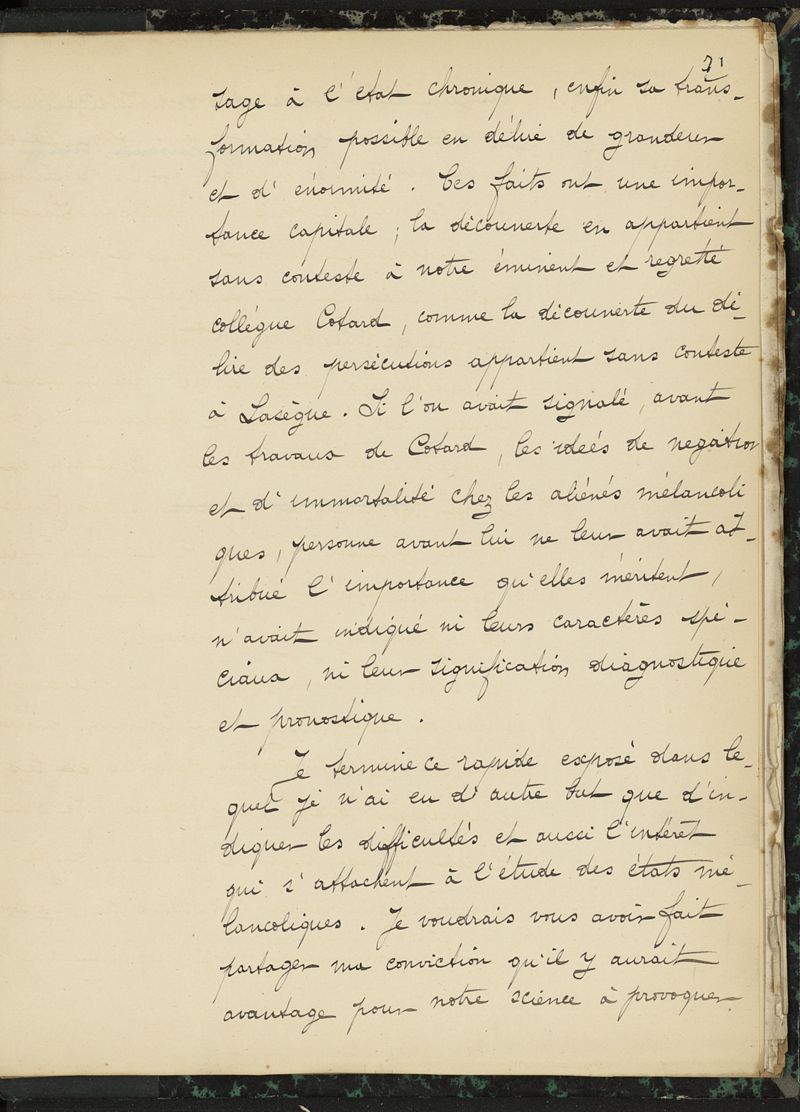 71
sage à l'état chronique, enfin sa trans-
formation possible en délire de grandeur
et d'énormité. Ces faits ont une impor-
tance capitale ; la découverte en appartient
sans conteste à notre éminent et regretté
collégue Cotard, comme la découverte du dé-
lire des persécutions appartient sans conteste
à Lasègue. Si l'on avait signalé, avant
les travaux de Cotard, les ideés de negation
et d'immortalité chez les aliénés mélancoli
ques, personne avant lui ne leur avait at-
tribué l'importance qu'elles méritent,
n'avait indiqué ni leurs caractères spé-
ciaux, ni leur signification diagnostique
et pronostique.
Je termine ce rapide exposé dans le-
quel je n'ai eu d'autre but que d'in-
diquer les difficultés et aussi l'intéret
qui s'attachent à l'étude des états mé-
lancoliques. Je voudrais vous avoir fait
partager ma conviction qu'il y aurait
avantage pour notre science à provoquer